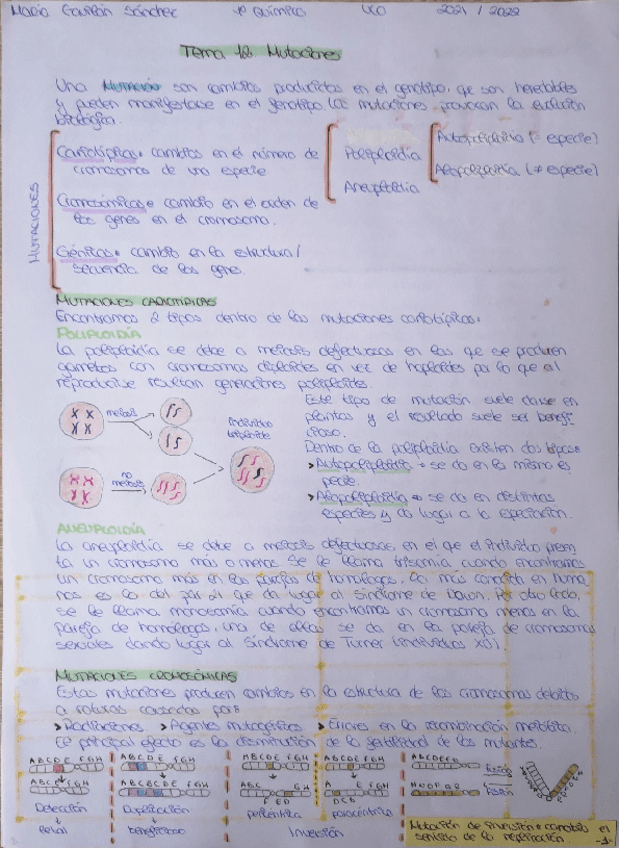 María Gavilán Sánchez 1º Química UCO 2021 / 2022
Tema 12. Mutaciones
Una Mutación son cambios producidos en el genotipo, que son heredables
y pueden manifestarse en el genotipo. Las mutaciones provocan la evolución
biológica.
MUTACIONES
Cariotípicas: cambios en el número de
cromosomas de una especie
Cromosómicas: cambio en el orden de
los genes en el cromosoma.
Génicas: cambio en la estructura /
secuencia de los genes.
Poliploidía
Aneuploidía
Autopoliploidía (= especie)
Alopoliploidía (≠ especie)
MUTACIONES CARIOTIPICAS
Encontramos 2 tipos dentro de las mutaciones cariotípicas:
POLIPLOIDÍA
La poliploidía se debe a meiosis defectuosas en las que se producen
gametos con cromosomas diploides en vez de haploides por lo que al
reproducirse resultan generaciones poliploides.
meiosis
no
meiosis
Individuo
triploide
Este tipo de mutación suele darse en
plantas y el resultado suele ser benefi
cioso.
Dentro de la poliploidía existen dos tipos:
> Autopoliploidía → se da en la misma es
pecie.
> Alopoliploidía → se da en distintas
especies y da lugar a la especiación.
ANEUPLOIDÍA
La aneuploidía se debe a meiosis defectuosas, en el que el individuo presen
ta un cromosoma más o menos. Se le llama trisomía cuando encontramos
un cromosoma más en las parejas de homólogos. La más conocida en huma
nos es la del par 21 que da lugar al Síndrome de Down. Por otro lado,
se le llama monosomía cuando encontramos un cromosoma menos en la
pareja de homólogos, una de ellas se da en la pareja de cromosomas
sexuales dando lugar al Síndrome de Turner (individuos X0)
MUTACIONES CROMOSÓMICAS
Estas mutaciones producen cambios en la estructura de los cromosomas debidos
a roturas causadas por:
> Radiaciones > Agentes mutagénicos > Errores en la recombinación meiótica.
El principal efecto es la disminución de la fertilidad de los mutantes.
ABCDE FGH
Deleción
letal
ABCDE FGH
ABCBCDE FGH
Duplicación
beneficioso
ABCDE FGH
pericéntrica
ABCDE FGH
paracéntrica
Inversión
fusión
fisión
Mutación de inversión: cambia el
sentido de la replicación.
-1-